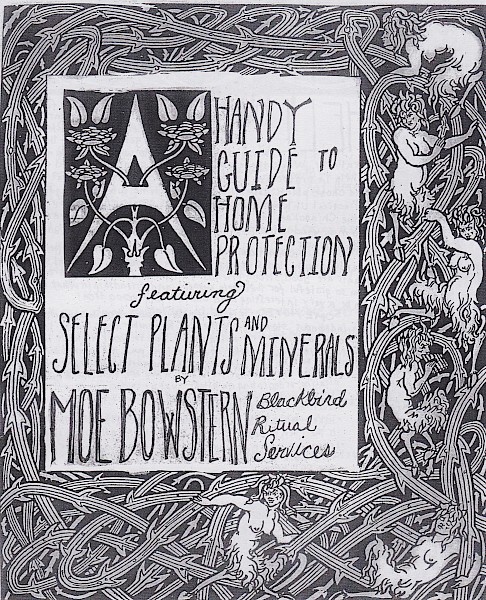 A HANDY
GUIDE TO
HOME
PROTECTION
featuring
SELECT PLANTS AND MINERALS
BY
MOE BOWSTERN
Blackbird
Ritual
Services